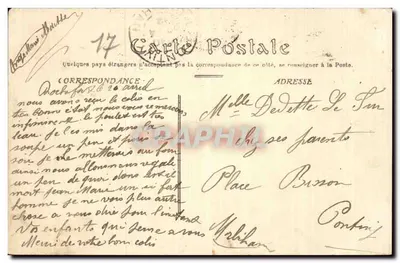 17
Carte Postale
Quelques pays étrangers n'acceptent pas la correspondance de ce côté, se renseigner à la Poste.
CORRESPONDANCE
ADRESSE
Rochefort 20 avril
nous avons reçu le colis en
bon état nous vous remercions
le poulet est très
beau je l'ai mis dans la
soupe un peu et pour ce
soir je me mettrais au four
ainsi nous allons nous régale
un peu de quoi dons
mort Jean Marie un si fait
homme je ne vous plus autre
chose a vous dire pour l'instant
Vos enfants qui pense a vous
Merci de votre bon colis
Melle Dedette Le
chez ses parents
Place Bisson
Pontivy
Morbihan
CPAPHIL